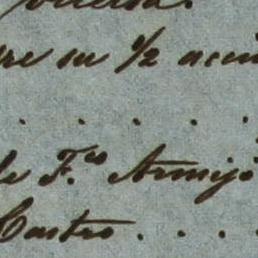 re su 1/2 acci
. . . . .
de F.co Armijo
Castro . . . .